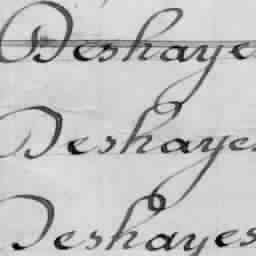 Deshayes
Deshayes
Deshayes